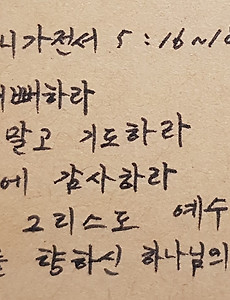 니가전서 5:16~18
기뻐하라
말고 기도하라
에 감사하라
그리스도 예수
향하신 하나님의